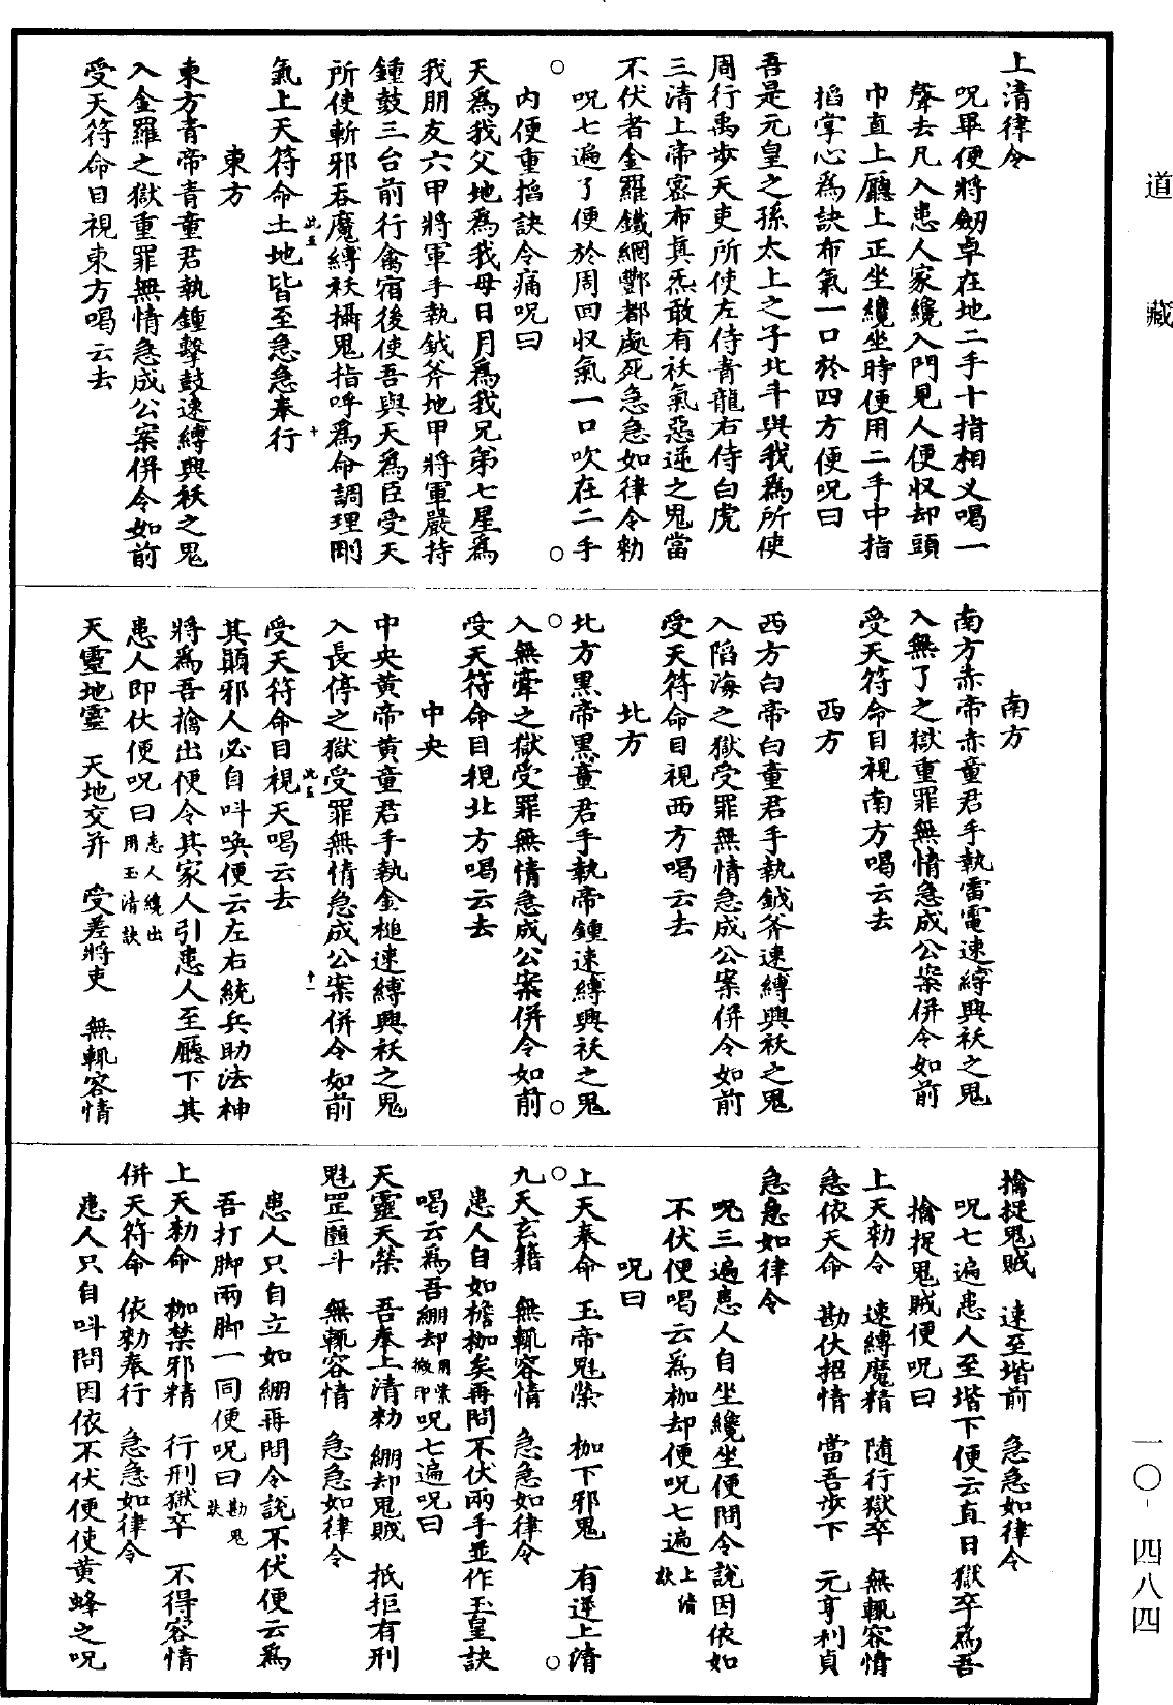 道藏
一〇-四八四
上清律令
呪畢便將劒卓在地二手十指相义喝一
聲去凡入患人家纔入門見人便収却頭
巾直上廳上正坐纔坐時便用二手中指
掐掌心為訣布氣一口於四方便呪曰
吾是元皇之孫太上之子北斗與我為所使
周行禹步天吏所使左侍青龍右侍白虎
三清上帝密布真炁敢有祅氣惡逆之鬼當
不伏者金羅鐵網酆都處死急急如律令勑
呪七遍了便於周回収氣一口吹在二手
内便重掐訣令痛呪曰
天為我父地為我母日月為我兄弟七星為
我朋友六甲將軍手執鉞斧地甲將軍嚴持
鍾鼓三台前行禽宿後使吾與天為臣受天
所使斬邪吞魔縛祅攝鬼指呼為命調理剛
氣上天符命土地皆至急急奉行
此五
十
東方
東方青帝青童君執鍾擊鼓速縛興祅之鬼
入金羅之獄重罪無情急成公案併令如前
受天符命目視東方喝云去
南方
南方赤帝赤童君手執雷電速縛興祅之鬼
入無了之獄重罪無情急成公案併令如前
受天符命目視南方喝云去
西方
西方白帝白童君手執鉞斧速縛興祅之鬼
入陷海之獄受罪無情急成公案併令如前
受天符命目視西方喝云去
北方
北方黑帝黑童君手執帝鍾速縛興祅之鬼
入無牽之獄受罪無情急成公案併令如前
受天符命目視北方喝云去
中央
中央黃帝黃童君手執金槌速縛興祅之鬼
入長停之獄受罪無情急成公案併令如前
受天符命目視天喝云去
此五
十一
其顛邪人必自呌喚便云左右統兵助法神
將為吾擒出便令其家人引患人至廳下其
患人即伏便呪曰患人纔出用玉清訣
天靈地靈　天地交并　受差將吏　無輒容情
擒捉鬼賊　速至堦前　急急如律令
呪七遍患人至堦下便云直日獄卒為吾
擒捉鬼賊便呪曰
上天勑令　速縛魔精　隨行獄卒　無輒容情
急依天命　勘伏招情　當吾步下　元亨利貞
急急如律令
呪三遍患人自坐纔坐便問令說因依如
不伏便喝云為枷却便呪七遍上清訣
呪曰
上天奉命　玉帝魁榮　枷下邪鬼　有逆上清
九天玄籍　無輒容情　急急如律令
患人自如擔枷矣再問不伏兩手並作玉皇訣
喝云為吾綳却用紫微印呪七遍呪曰
天靈天榮　吾奉上清勑　綳却鬼賊　抵拒有刑
魁罡匭斗　無輒容情　急急如律令
患人只自立如綳再問令說不伏便云為
吾打脚兩脚一同便呪曰勘鬼訣
上天勑命　枷禁邪精　行刑獄卒　不得容情
併天符命　依勑奉行　急急如律令
患人只自呌問因依不伏便使黃蜂之呪